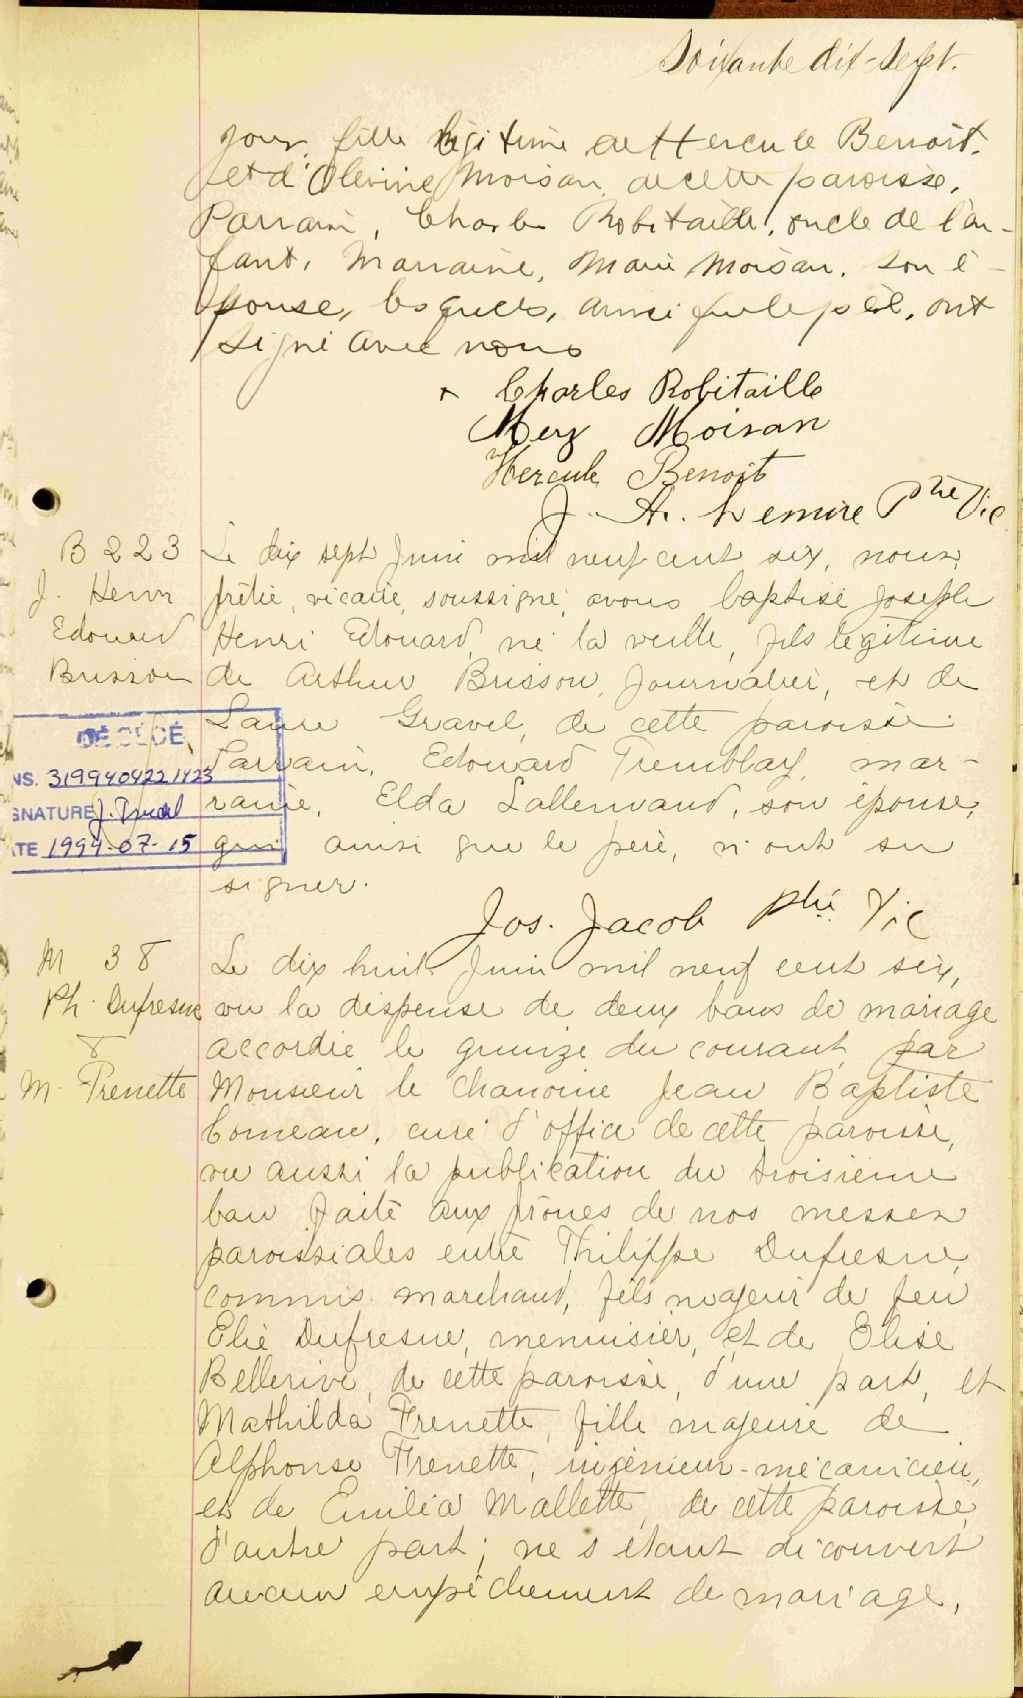 Soixante dix-sept.
jour, fille légitime de Hercule Benoit,
et d'Olevine Moisan, de cette paroisse.
Parrain, Charles Robitaille, oncle de l'en-
fant, Marraine, Marie Moisan, son é-
pouse, lesquels, ainsi que le père, ont
signé avec nous
Charles Robitaille
Mery Moisan
Hercule Benoit
J. A. Lemire Ptre Vic
B 223
J. Henri
Edouard
Brisson
Le dix sept Juin mil neuf cent six, nous,
prêtre, vicaire, soussigné, avons baptisé Joseph
Henri Edouard, né la veille, fils légitime
de Arthur Brisson, Journalier, et de
Laure Gravel, de cette paroisse.
Parrain, Edouard Tremblay, mar-
raine, Elda Lallemand, son épouse,
qui ainsi que le père, n'ont su
signer.
Jos. Jacob Ptre Vic
DÉCÉDÉ
NS. 3199404221423
GNATURE J.
TE 1999-07-15
M 38
Ph. Dufresne
&
M. Frenette
Le dix huit Juin mil neuf cent six,
vu la dispense de deux bans de mariage
accordée le quinze du courant par
Monsieur le Chanoine Jean Baptiste
Comeau, curé d'office de cette paroisse,
vu aussi la publication du troisième
ban faite aux prônes de nos messes
paroissiales entre Philippe Dufresne,
commis marchand, fils majeur de feu
Elie Dufresne, menuisier, et de Elise
Bellerive, de cette paroisse, d'une part, et
Mathilda Frenette, fille majeure de
Alphonse Frenette, ingénieur-mécanicien,
et de Emilia Mallette, de cette paroisse,
d'autre part; ne s'étant découvert
aucun empêchement de mariage,